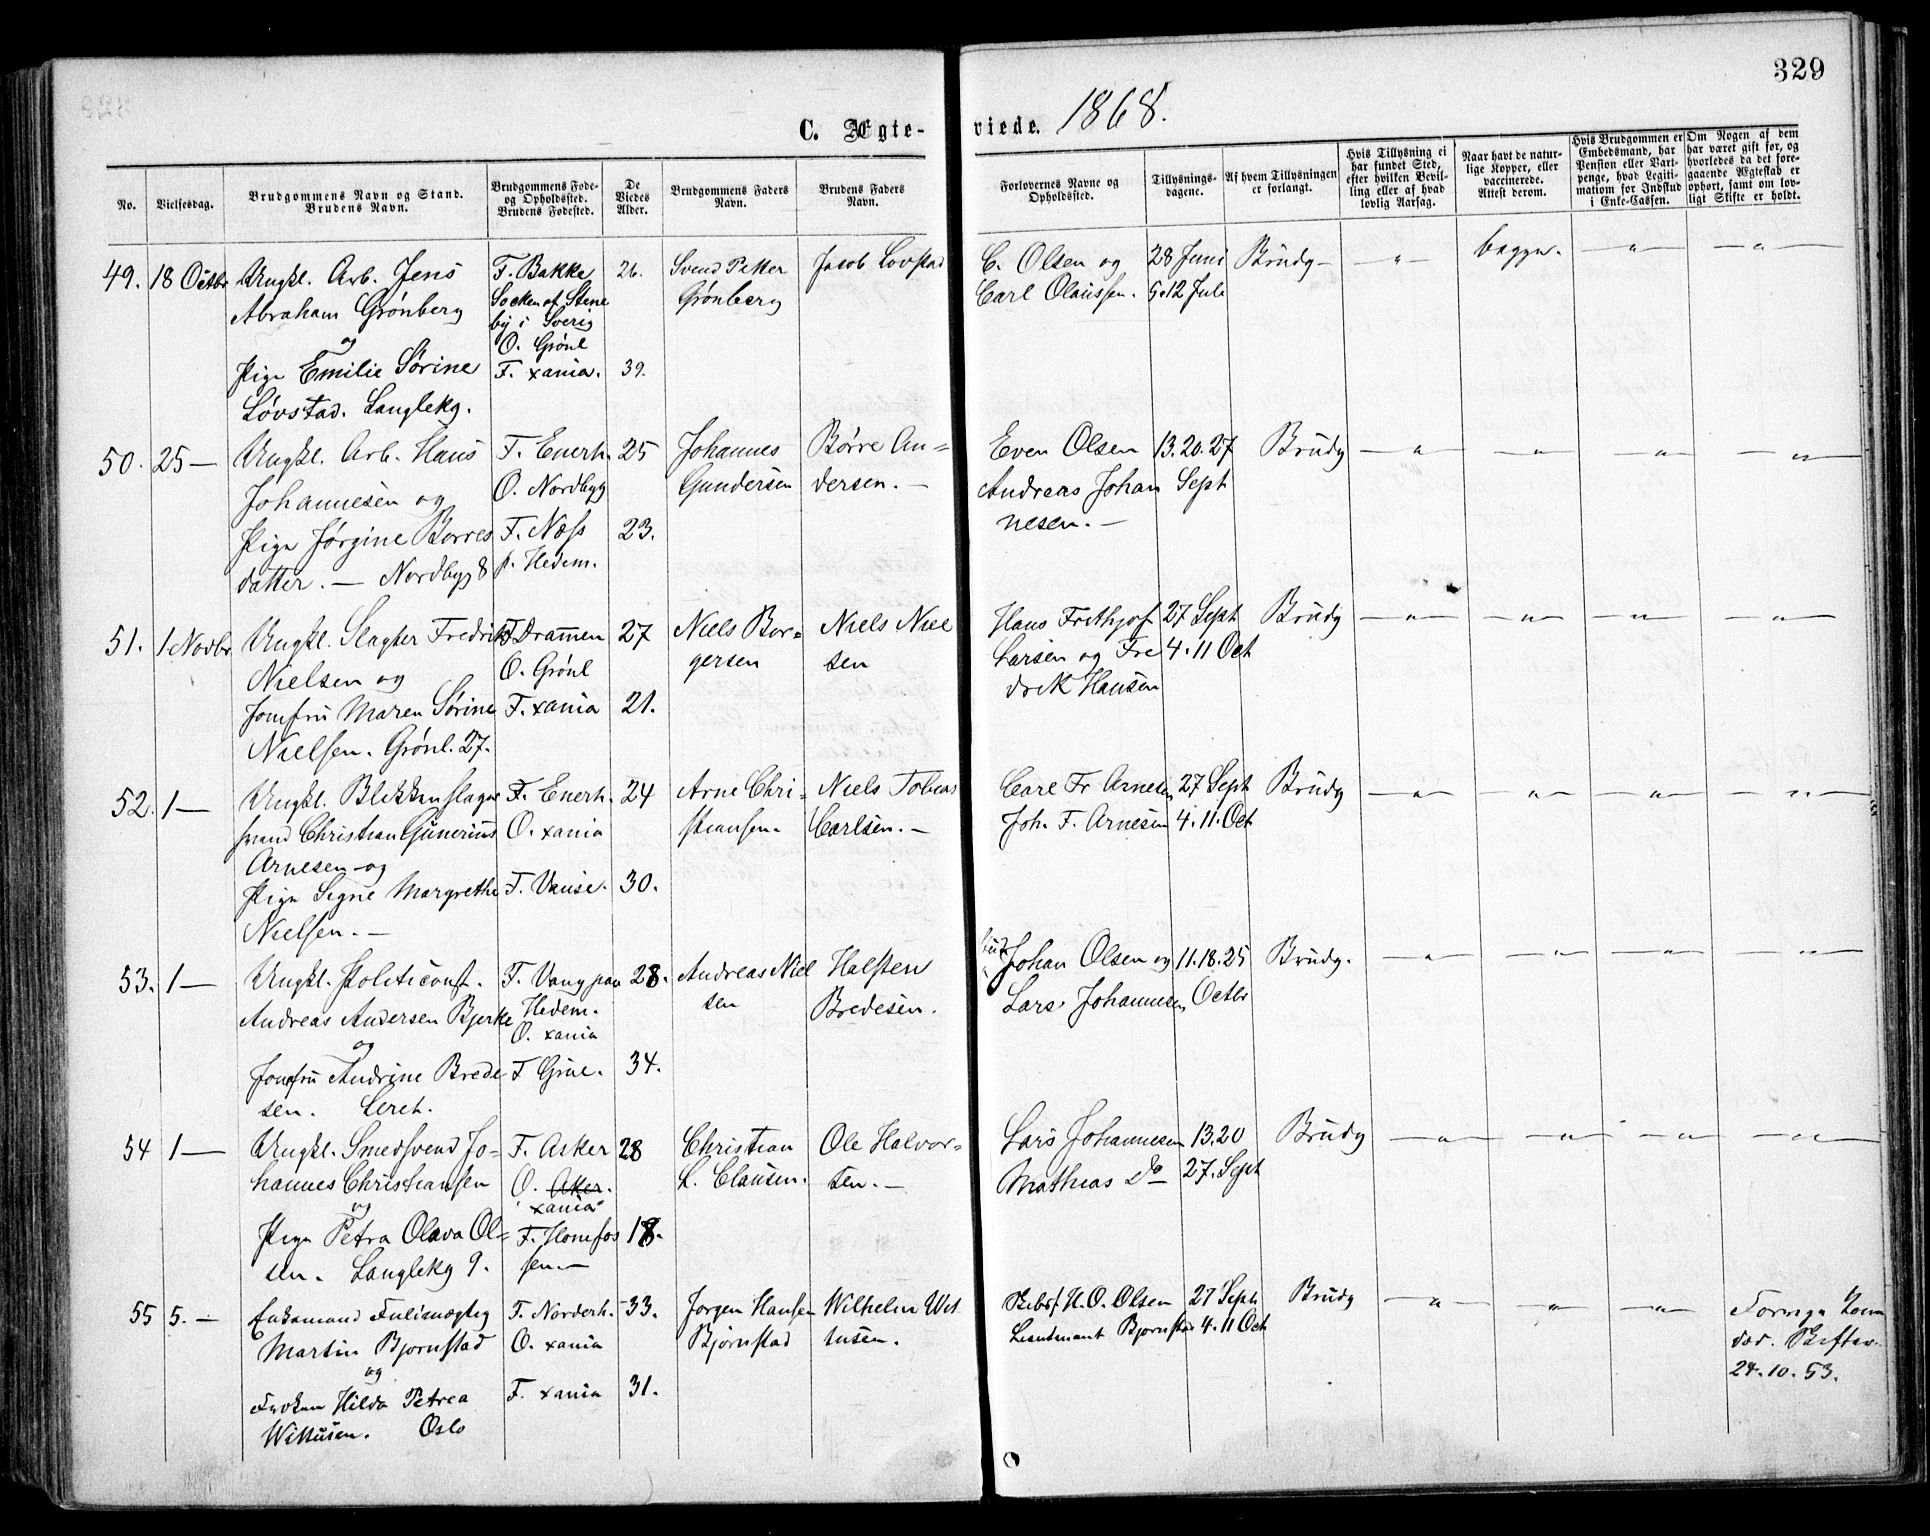 329
C. Ægte-
viede. 1868.
No.
Vielsesdag.
Brudgommens Navn og Stand.
Brudens Navn.
Brudgommens Føde-
og Opholdssted.
Brudens Fødested.
De
Viedes
Alder.
Brudgommens Faders
Navn.
Brudens Faders
Navn.
Forlovernes Navne og
Opholdssted.
Tillysnings-
dagene.
Af hvem Tillysningen
er forlangt.
Hvis Tillysning ei
har fundet Sted,
efter hvilken Bevil-
ling eller af hvad
lovlig Aarsag.
Naar havt de natur-
lige Kopper, eller
vaccinerede.
Attest derom.
Hvis Brudgommen er
Embedsmand, har
Pension eller Vart-
penge, hvad Legiti-
mation for Indskud
i Enke-Cassen.
Om Nogen af dem
har været gift før, og
hvorledes da det fore-
gaaende Ægteskab er
ophørt, samt om lov-
ligt Skifte er holdt.
49. 18 Octbr
Ungkl. Arb. Jens
Abraham Grönberg
og
Pige Emilie Sørine
Løvstad. Langlekg.
F. Bakke
Socken af Stene
by i Sverig
O. Grönl
F. xania.
26.
39.
Svend Petter
Grönberg
Jacob Lovstad
C. Olsen og
Carl Olaussen.
28 Juni
5.12 Juli
Brudg — " — begge. — " — — " —
50. 25 —
Ungkl. Arb. Hans
Johannesen og
Pige Jørgine Borres
datter. — Nordbyg 8
F. Enerh.
O. Nordbyg
F. Næss
p. Hedem.
25
23.
Johannes
Gundersen
Børre An=
dersen. —
Even Olsen
Andreas Johan
nesen. —
13.20.27
Sept
Brudg — " — — " — — " — — " —
51. 1 Novbr
Ungkl. Slagter Fredrik
Nielsen og
Jomfru Maren Sörine
Nielsen. Grönl. 27.
F. Dramen
O. Grönl
F. xania
27
21.
Niels Bor=
gersen
Niels Niel
sen
Hans Frithjof
Larsen og Fre
drik Hansen
27 Sept
4. 11 Oct
Brudg — " — — " — — " — — " —
52. 1 —
Ungkl. Blikkenslager
svend Christian Gunerius
Arnesen og
Pige Signe Margrethe
Nielsen. —
F. Enerh.
O. xania
F. Vanse.
24
30.
Arne Chri-
stiansen.
Niels Tobias
Carlsen. —
Carl Fr Arnesen
Joh. F. Arnesen
27 Sept
4. 11. Oct
Brudg — " — — " — — " — — " —
53. 1 —
Ungkl. Politiconst.
Andreas Andersen Bjerke
og
Jomfru Andrine Brede
sen. Lerch.
F. Vang paa
Hedem.
O. xania
F Grue.
28.
34.
Andreas Niel
sen
Halsten
Bredesen.
Johan Olsen og
Lars Johannesen
11.18.25
Octbr
Brudg. — " — — " — — " — — " —
54 1 —
Ungkl. Smedsvend Jo-
hannes Christiansen
og
Pige Petra Olava Ol=
sen. Langlekg 9.
F. Asker
O. Aker.
xania
F. Honefos
sen. —
28
18.
Christian
L. Clausen.
Ole Halvor-
sen. —
Lars Johannesen
Mathias Do
13.20
27. Sept
Brudg — " — — " — — " — — " —
55 5. —
Enkemand Fuldmægtig
Martin Bjornstad
og
Frøken Hilda Petrea
Wittusen. Oslo
F. Norderh.
O. xania
F. xania
33.
31.
Jorgen Hansen
Bjørnstad
Wilhelm Wit
tusen.
Skibsf H. O. Olsen
Lieutenant Bjornstad
27 Sept
4. 11 Oct
Brudg — " — — " — — " —
Forrige Kone
død. Skiftev.
24. 10. 53.